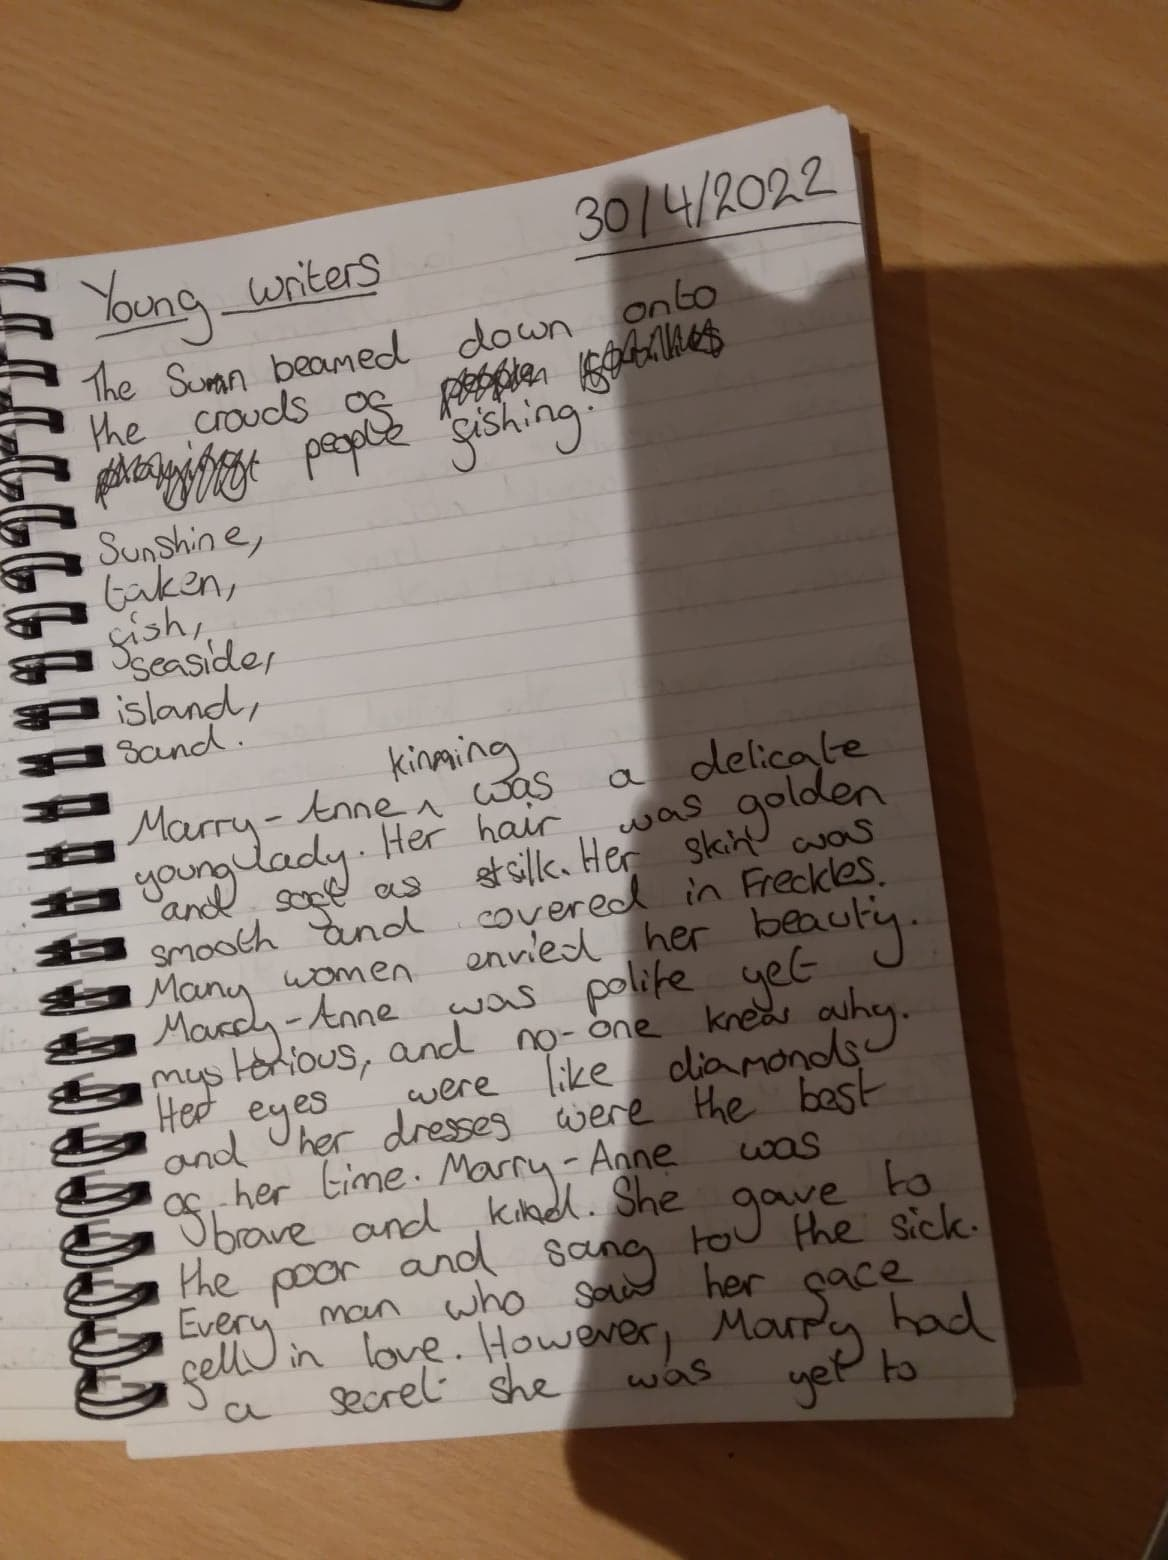 30/4/2022
Young writers
The Sun beamed down onto
the crouds of
people fishing.
Sunshine,
taken,
fish,
seaside,
island,
sand.
kinming
Marry-Anne ^ was a delicate
young lady. Her hair was golden
and soft as silk. Her skin was
smooth and covered in Freckles.
Many women envied her beauty.
Marry-Anne was polite yet
mysterious, and no-one knew why.
Her eyes were like diamonds
and her dresses were the best
of her time. Marry-Anne was
brave and kind. She gave to
the poor and sang to the sick.
Every man who saw her face
fell in love. However, Marry had
a secret she was yet to